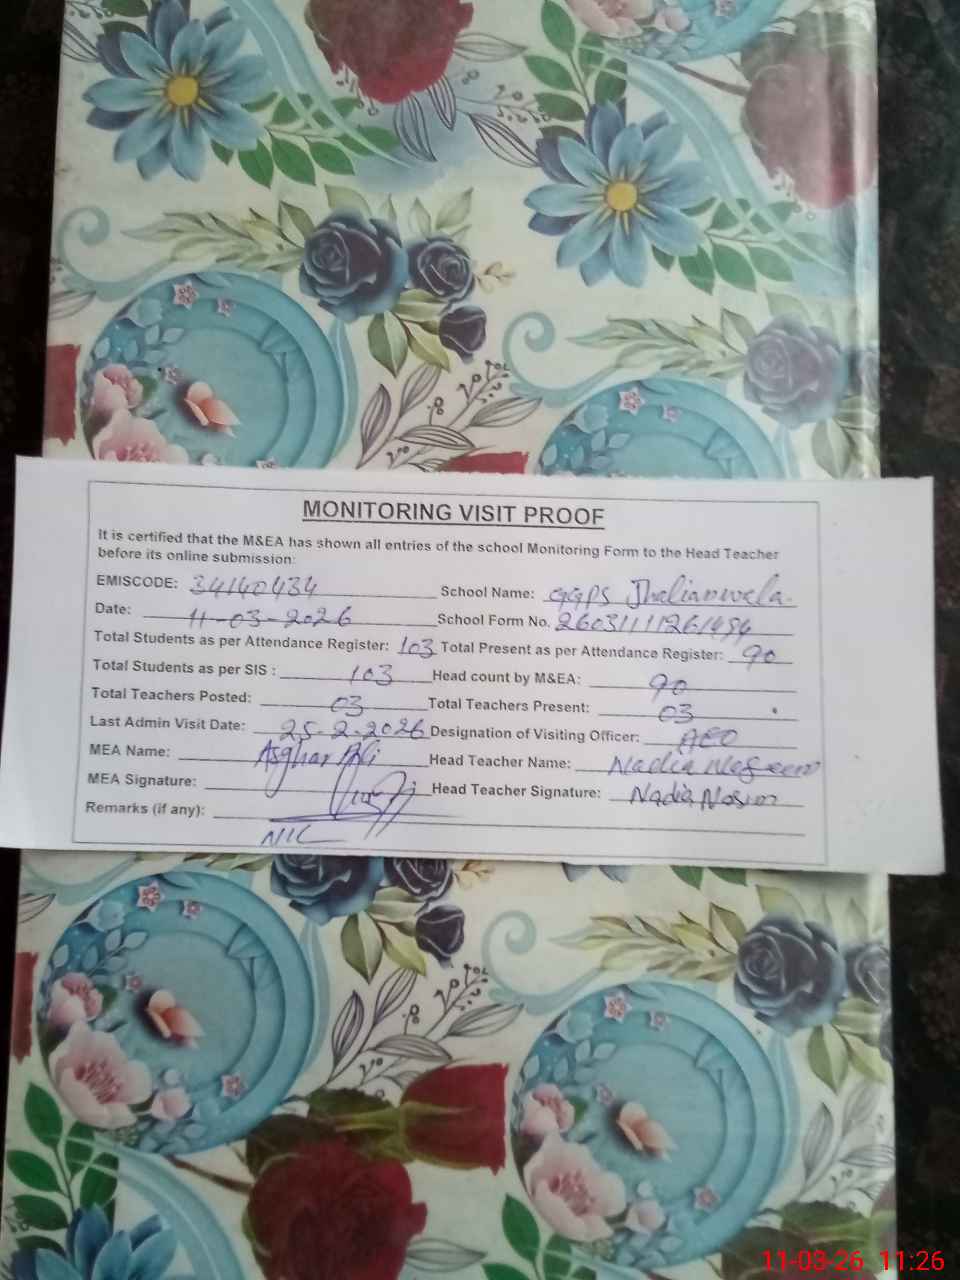 MONITORING VISIT PROOF
It is certified that the M&EA has shown all entries of the school Monitoring Form to the Head Teacher
before its online submission:
EMISCODE: 34140434 School Name: GGPS Jhalianwala.
Date: 11-03-2026 School Form No.
Total Students as per Attendance Register: 103 Total Present as per Attendance Register: 90
Total Students as per SIS : 103 Head count by M&EA: 90
Total Teachers Posted: 03 Total Teachers Present: 03
Last Admin Visit Date: 25-2-2026 Designation of Visiting Officer: AEO
MEA Name: Asghar Ali Head Teacher Name: Nadia
MEA Signature: Head Teacher Signature: Nadia
Remarks (if any): NIL
11-03-26 11:26